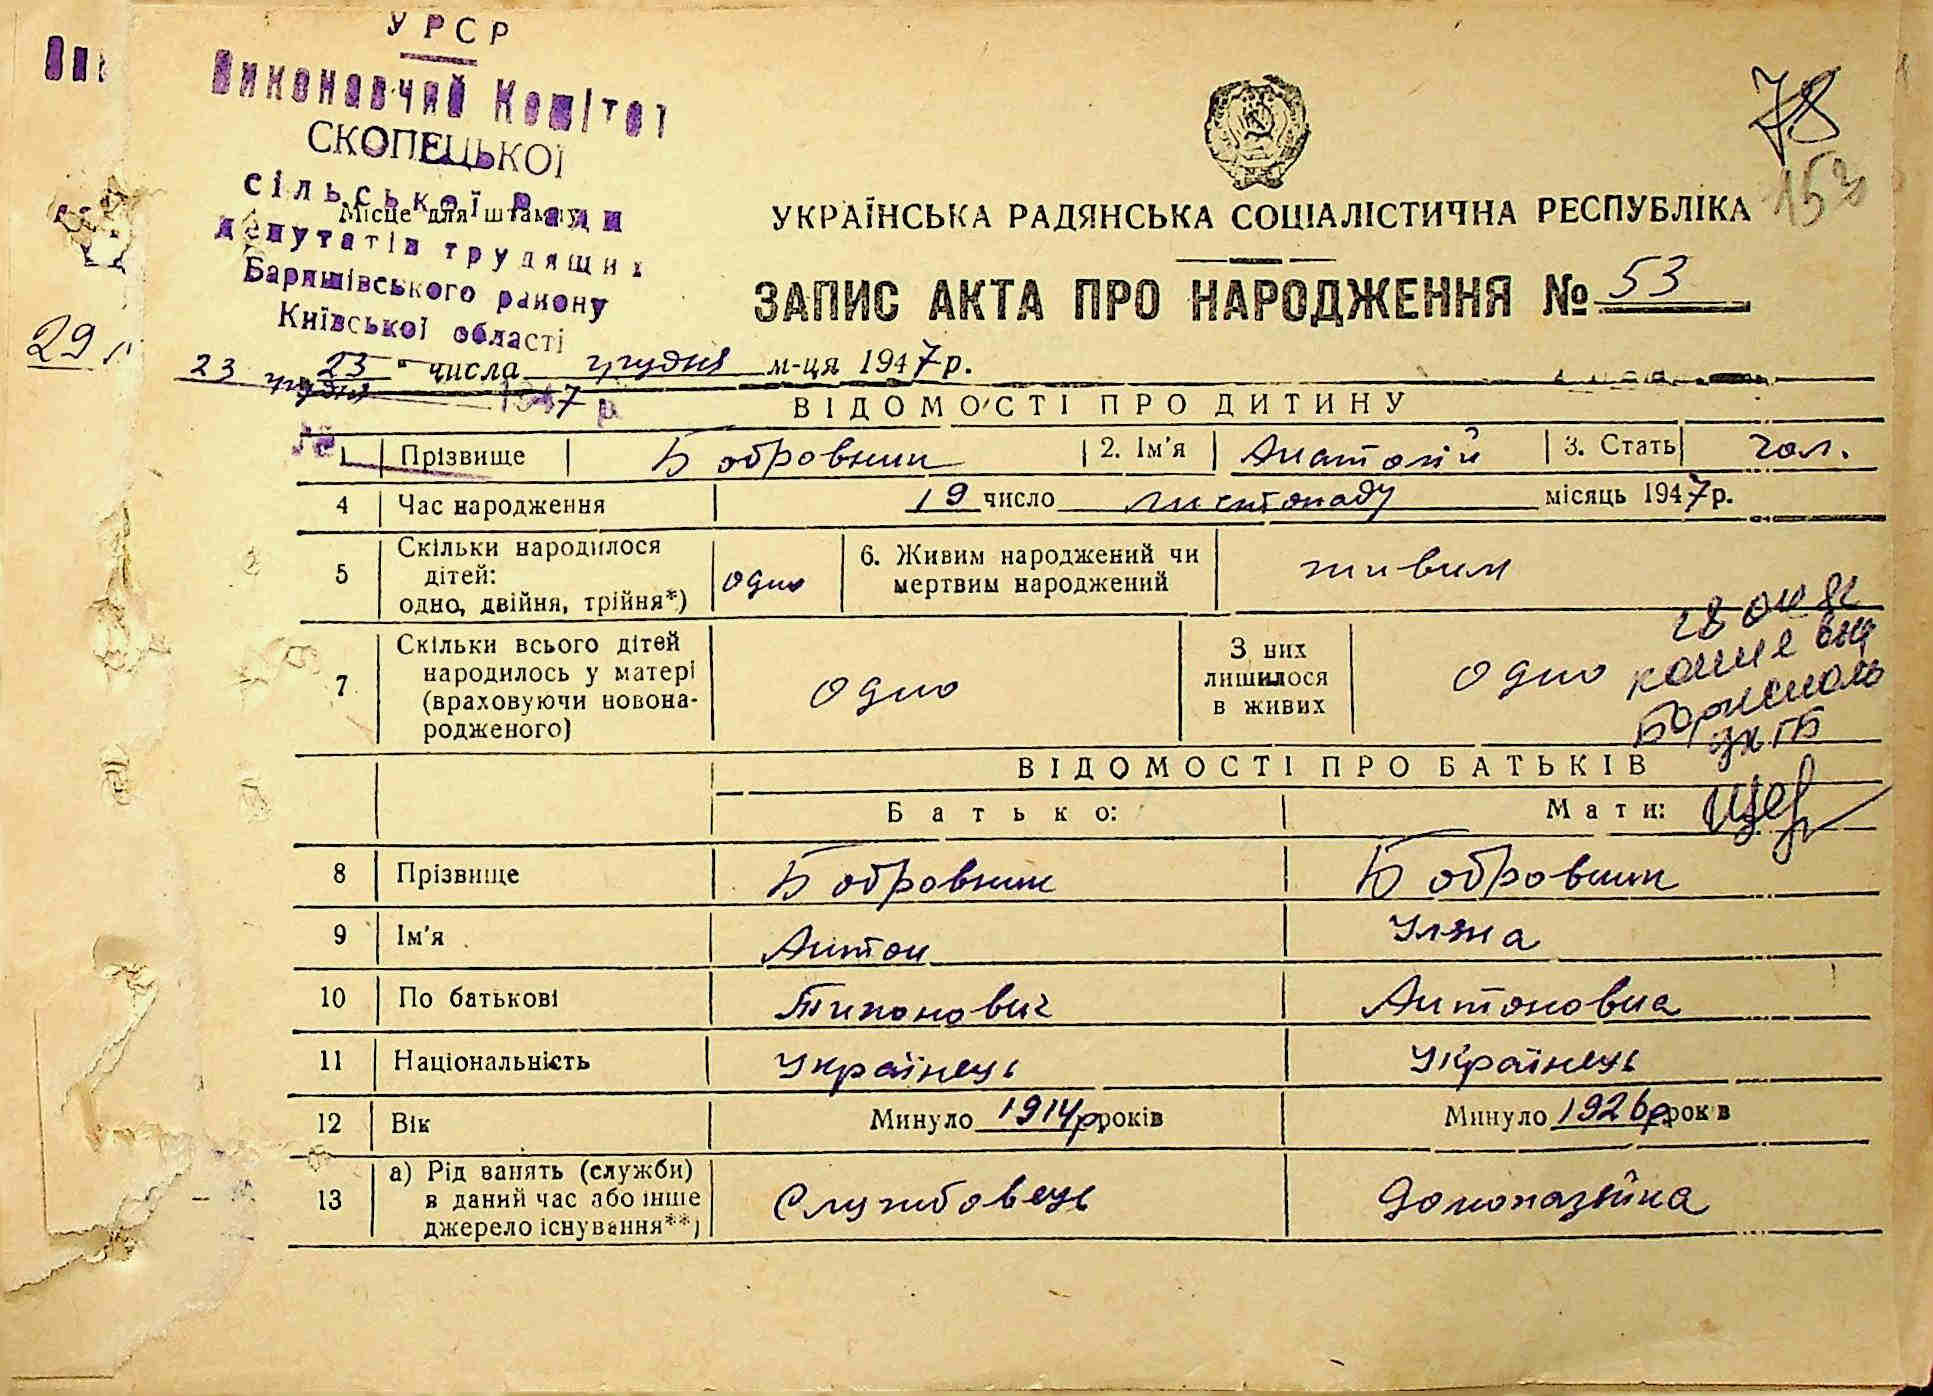 УРСР
Виконавчий Комітет
СКОПЕЦЬКОЇ
сільської Ради
Місце для штампу
депутатів трудящих
Баришівського району
Київської області
23 грудня 1947 р.
№
78
153
29
УКРАЇНСЬКА РАДЯНСЬКА СОЦІАЛІСТИЧНА РЕСПУБЛІКА
ЗАПИС АКТА ПРО НАРОДЖЕННЯ № 53
„23" числа грудня м-ця 1947 р.
ВІДОМОСТІ ПРО ДИТИНУ
1 Прізвище Бобровник 2. Ім'я Анатолій 3. Стать чол.
4 Час народження 19 число листопаду місяць 1947 р.
5 Скільки народилося дітей: одно, двійня, трійня*) одно 6. Живим народжений чи мертвим народжений живим
7 Скільки всього дітей народилось у матері (враховуючи новонародженого) одно З них лишилося в живих одно
ВІДОМОСТІ ПРО БАТЬКІВ
Батько: Мати:
8 Прізвище Бобровник Бобровник
9 Ім'я Антон Уляна
10 По батькові Тихонович Антоновна
11 Національність Українець Українець
12 Вік Минуло 1914 р. років Минуло 1926 р. рок в
13 а) Рід занять (служби) в даний час або інше джерело існування**) Службовець Домохазяйка